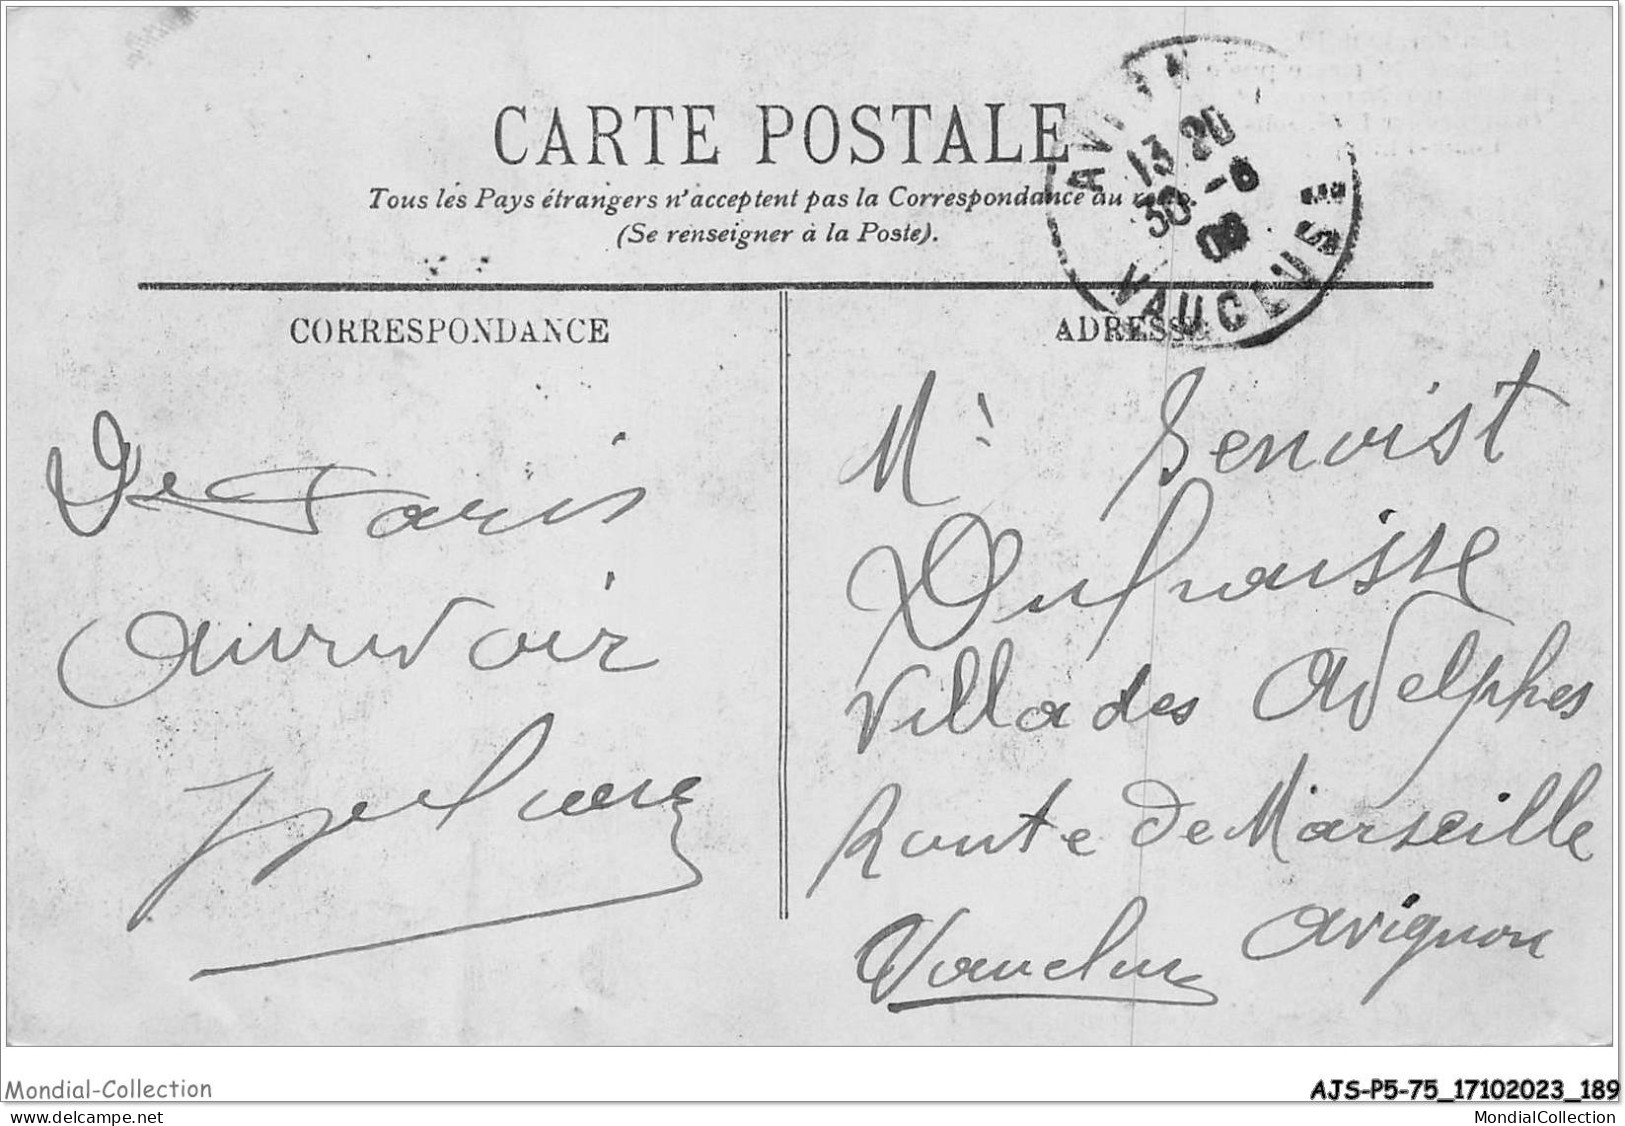 CARTE POSTALE
Tous les Pays étrangers n'acceptent pas la Correspondance au
(Se renseigner à la Poste).
13 20
30 -8
VAUCLUSE
CORRESPONDANCE
ADRESSE
De Paris
aurevoir
Mr Benoist
Dufraisse
Villa des Adelphes
Route de Marseille
Avignon
Vaucluse
Mondial-Collection
AJS-P5-75_17102023_189
www.delcampe.net
MondialCollection